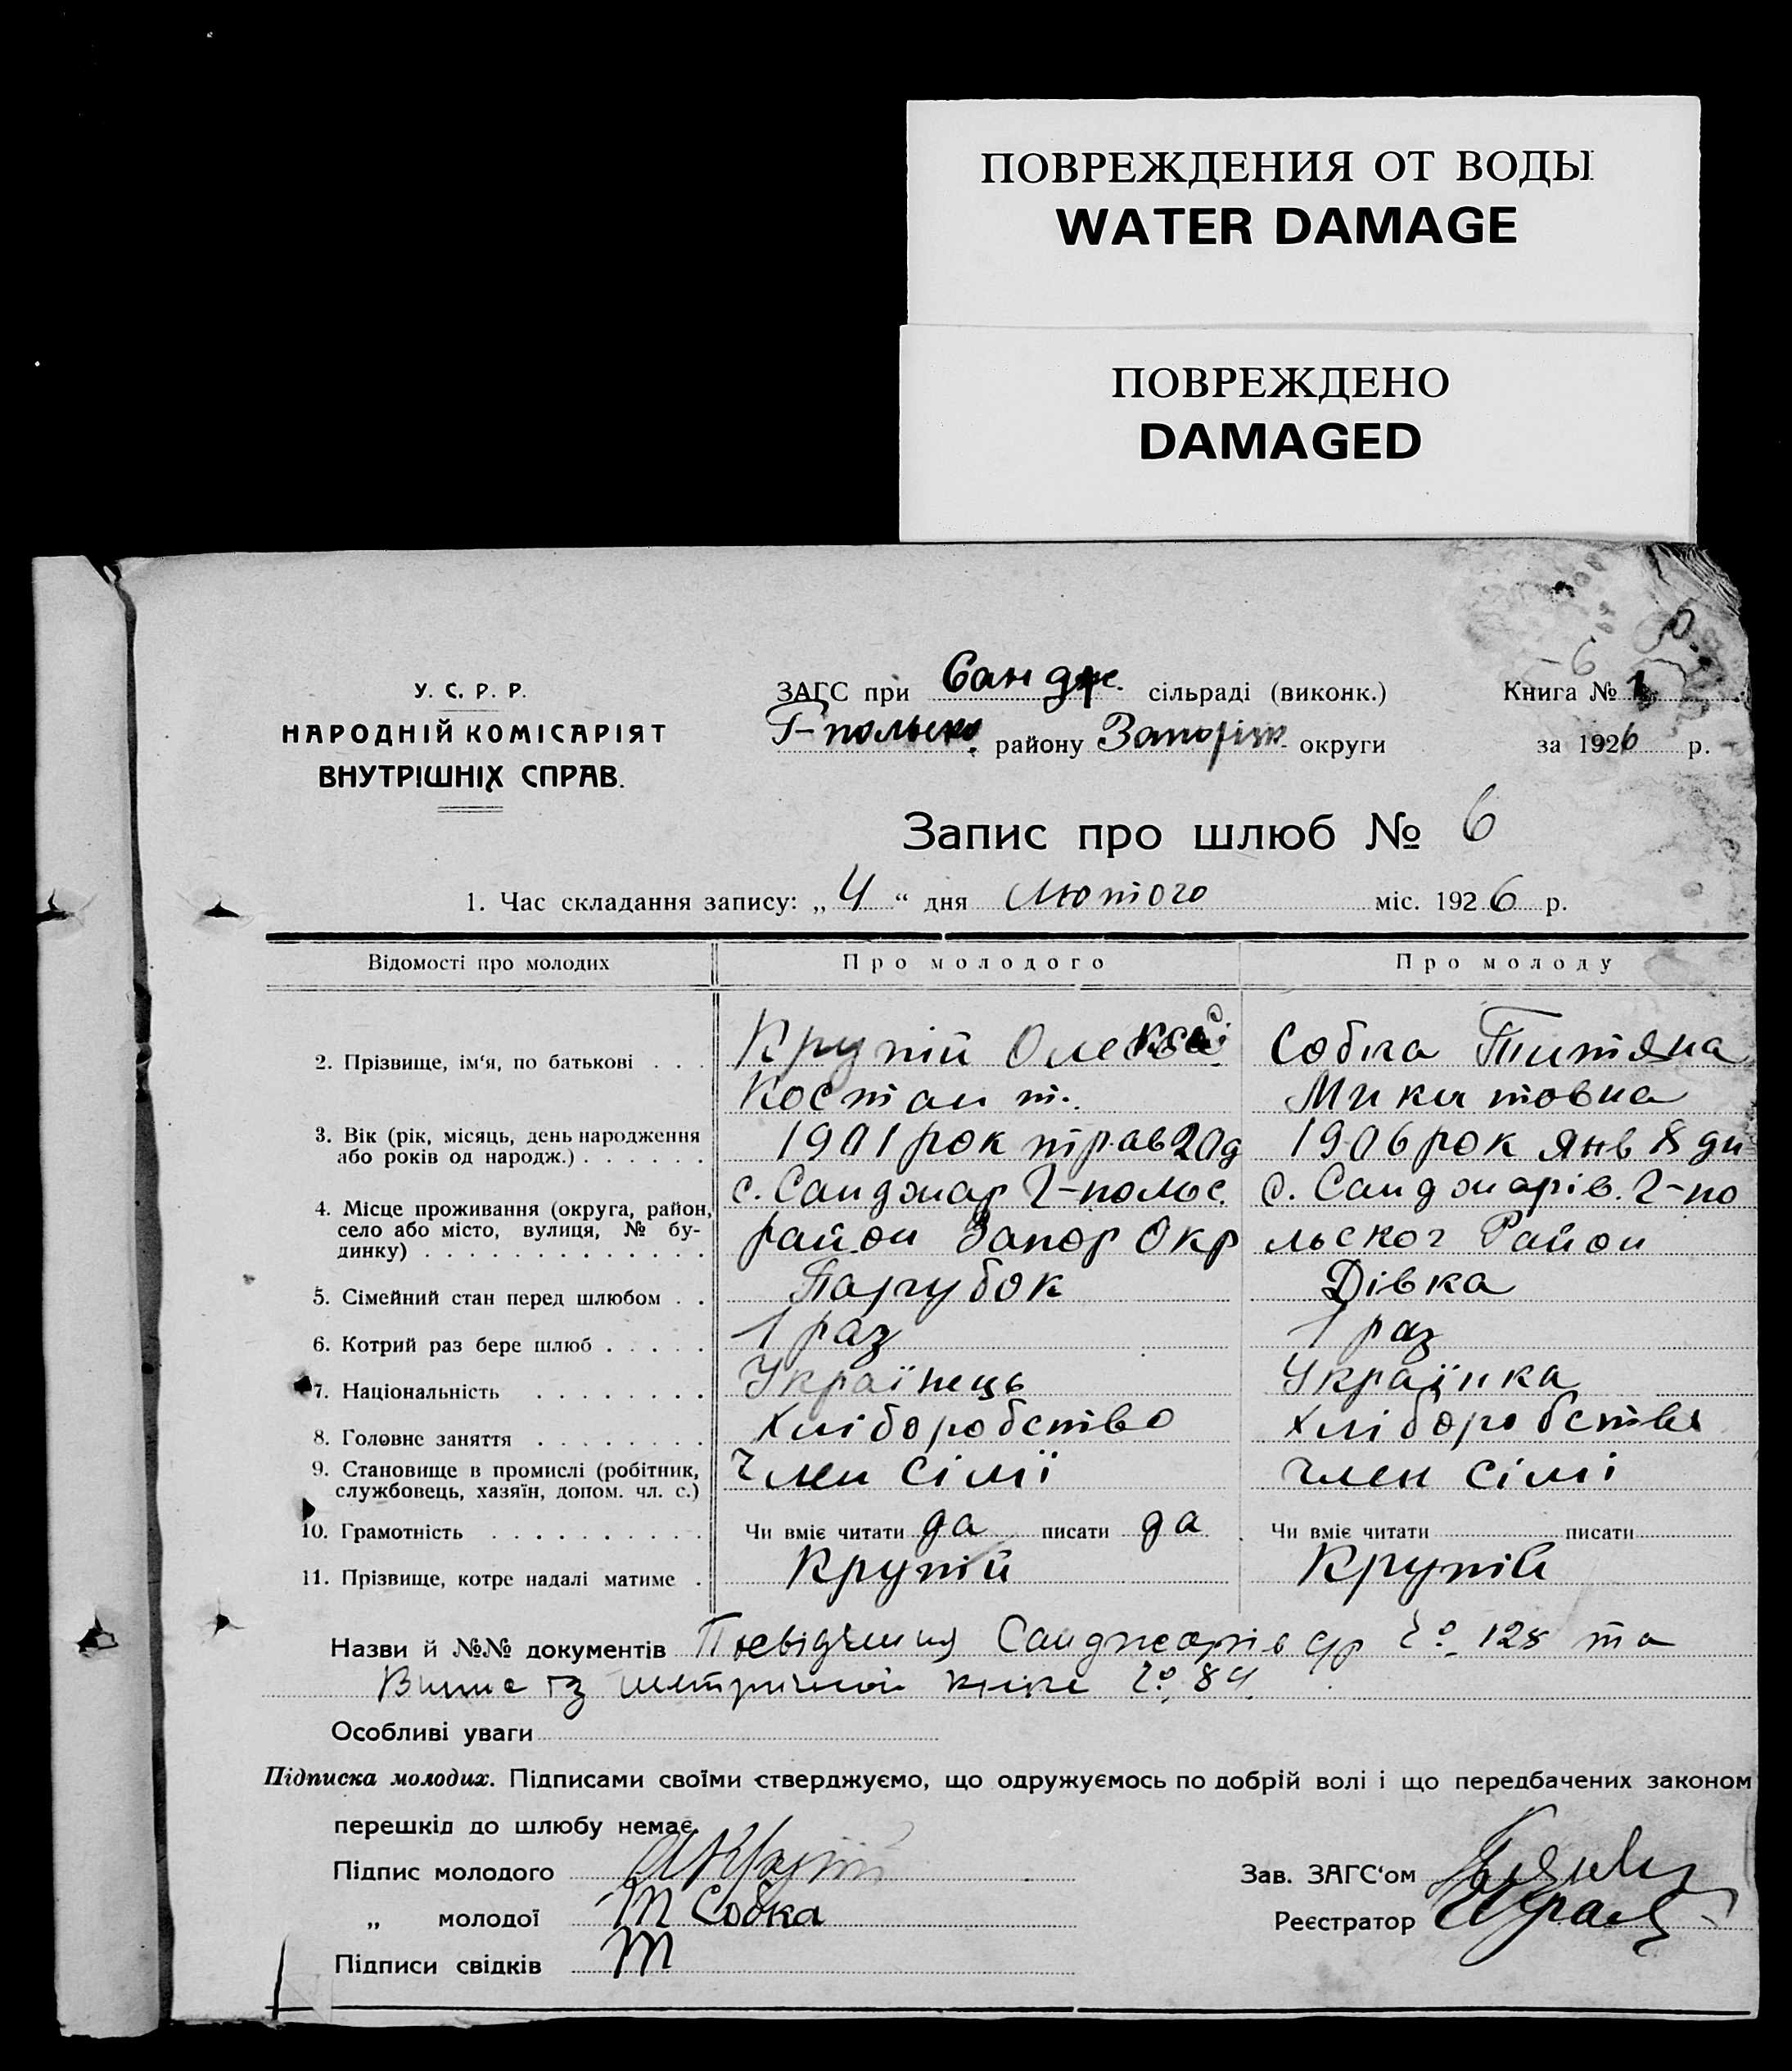 ПОВРЕЖДЕНИЯ ОТ ВОДЫ
WATER DAMAGE
ПОВРЕЖДЕНО
DAMAGED
6
У. С. Р. Р.
НАРОДНІЙ КОМІСАРІЯТ
ВНУТРІШНІХ СПРАВ.
ЗАГС при Сандж. сільраді (виконк.)
Книга № 1
Г-польско району Запоріж округи
за 1926 р.
Запис про шлюб № 6
1. Час складання запису: „ 4 “ дня Лютого міс. 1926 р.
Відомості про молодих Про молодого Про молоду
2. Прізвище, ім‘я, по батькові . . . Крупій Олексій Собка Титяна
Костант. Микитовна
3. Вік (рік, місяць, день народження 1901 рок трав 20 д 1906 рок янв 8 дн
або років од народж.) . . . . . .
4. Місце проживання (округа, район, с. Санджар Г-польс. с. Санджарів. Г-по
село або місто, вулиця, № бу- район Запор Окр льског Район
динку) . . . . . . . . . . . . .
5. Сімейний стан перед шлюбом . . Парубок Дівка
6. Котрий раз бере шлюб . . . . . 1 раз 1 раз
7. Національність . . . . . . . . Українець Українка
8. Головне заняття . . . . . . . . Хліборобство хліборобство
9. Становище в промислі (робітник, Член сімї член сімі
службовець, хазяїн, допом. чл. с.)
10. Грамотність . . . . . . . . . . Чи вміє читати да писати да Чи вміє читати писати
11. Прізвище, котре надалі матиме . Крупій Крупій
Назви й №№ документів Посвідчення Санджарів с/р № 128 та
Випис із метричной книги № 84
Особливі уваги
Підписка молодих. Підписами своїми стверджуємо, що одружуємось по добрій волі і що передбачених законом
перешкід до шлюбу немає.
Підпис молодого АКрупій
Зав. ЗАГС‘ом
„ молодої Т Собка
Реєстратор
Підписи свідків Т